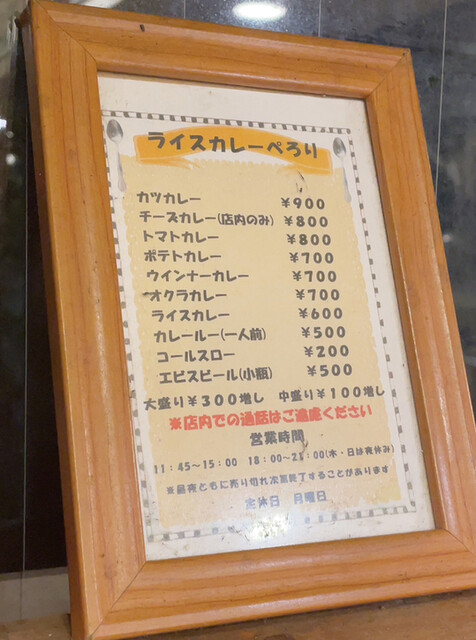 ライスカレーぺろり
カツカレー ¥900
チーズカレー(店内のみ) ¥800
トマトカレー ¥800
ポテトカレー ¥700
ウインナーカレー ¥700
オクラカレー ¥700
ライスカレー ¥600
カレールー(一人前) ¥500
コールスロー ¥200
エビスビール(小瓶) ¥500
大盛り¥300増し 中盛り¥100増し
※店内での通話はご遠慮ください
営業時間
11:45~15:00 18:00~21:00(木・日は夜休み)
※昼夜ともに売り切れ次第終了することがあります
定休日 月曜日